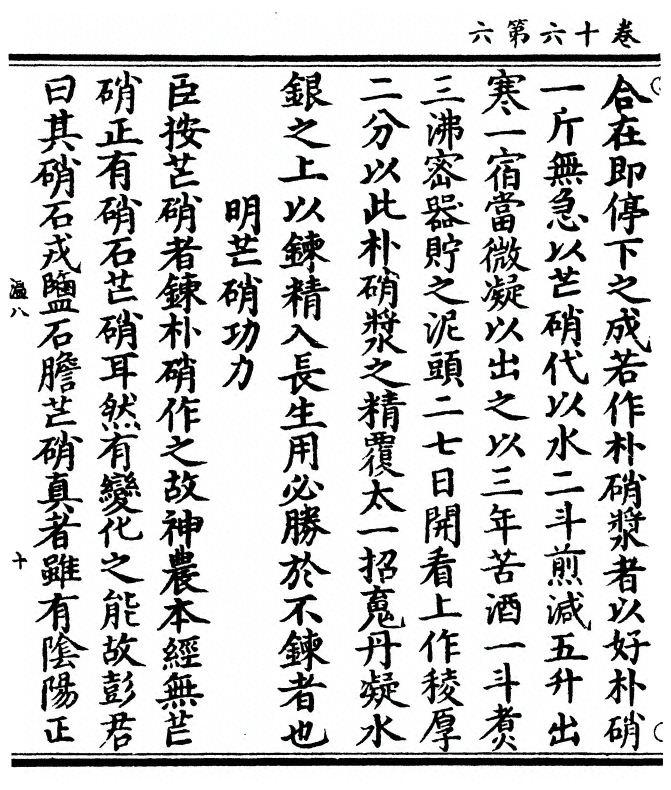 卷十六第六
合在即停下之成若作朴硝漿者以好朴硝
一斤無急以芒硝代以水二斗煎減五升出
寒一宿當微凝以出之以三年苦酒一斗煑
三沸密器貯之泥頭二七日開看上作稜厚
二分以此朴硝漿之精覆太一招䰟丹凝水
銀之上以鍊精入長生用必勝於不鍊者也
明芒硝功力
臣按芒硝者鍊朴硝作之故神農本經無芒
硝正有硝石芒硝耳然有變化之能故彭君
曰其硝石戎鹽石膽芒硝真者雖有陰陽正
溫八
十